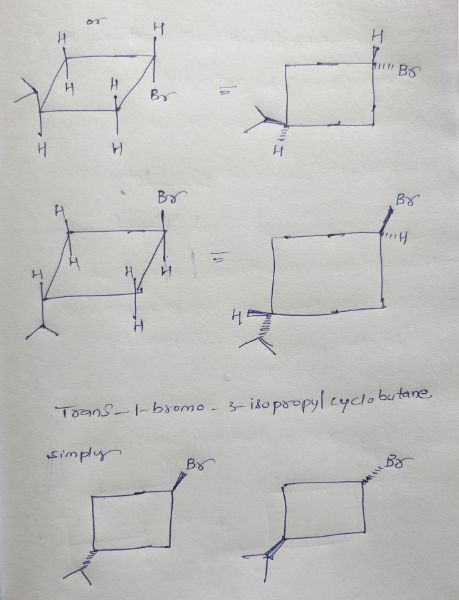 or
H H H
H H Br
H H
=
H
Br
H
H Br
H H H H
H
=
Br
H
H
Trans-1-bromo-3-isopropylcyclobutane
simply
Br Br